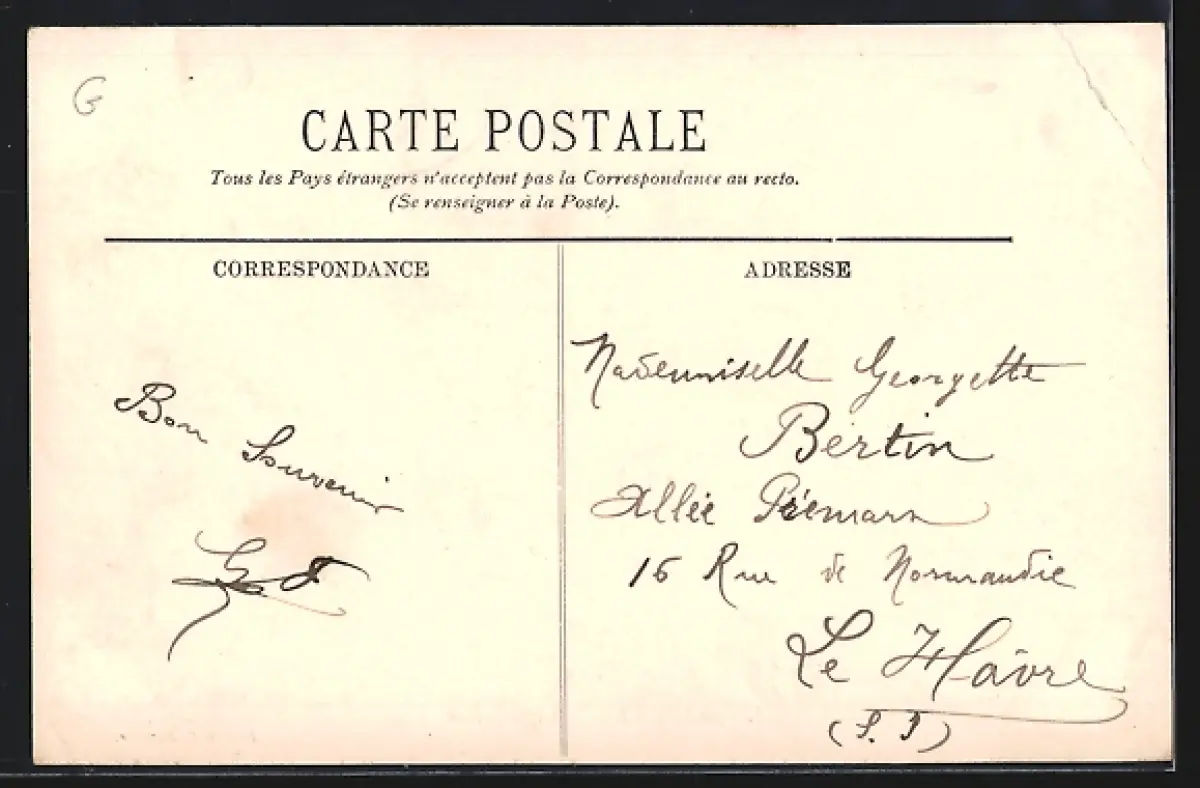 CARTE POSTALE
Tous les Pays étrangers n'acceptent pas la Correspondance au recto.
(Se renseigner à la Poste).
CORRESPONDANCE
ADRESSE
Bon Souvenir
Mademoiselle Georgette
Bertin
Allée
16 Rue de Normandie
Le Hâvre